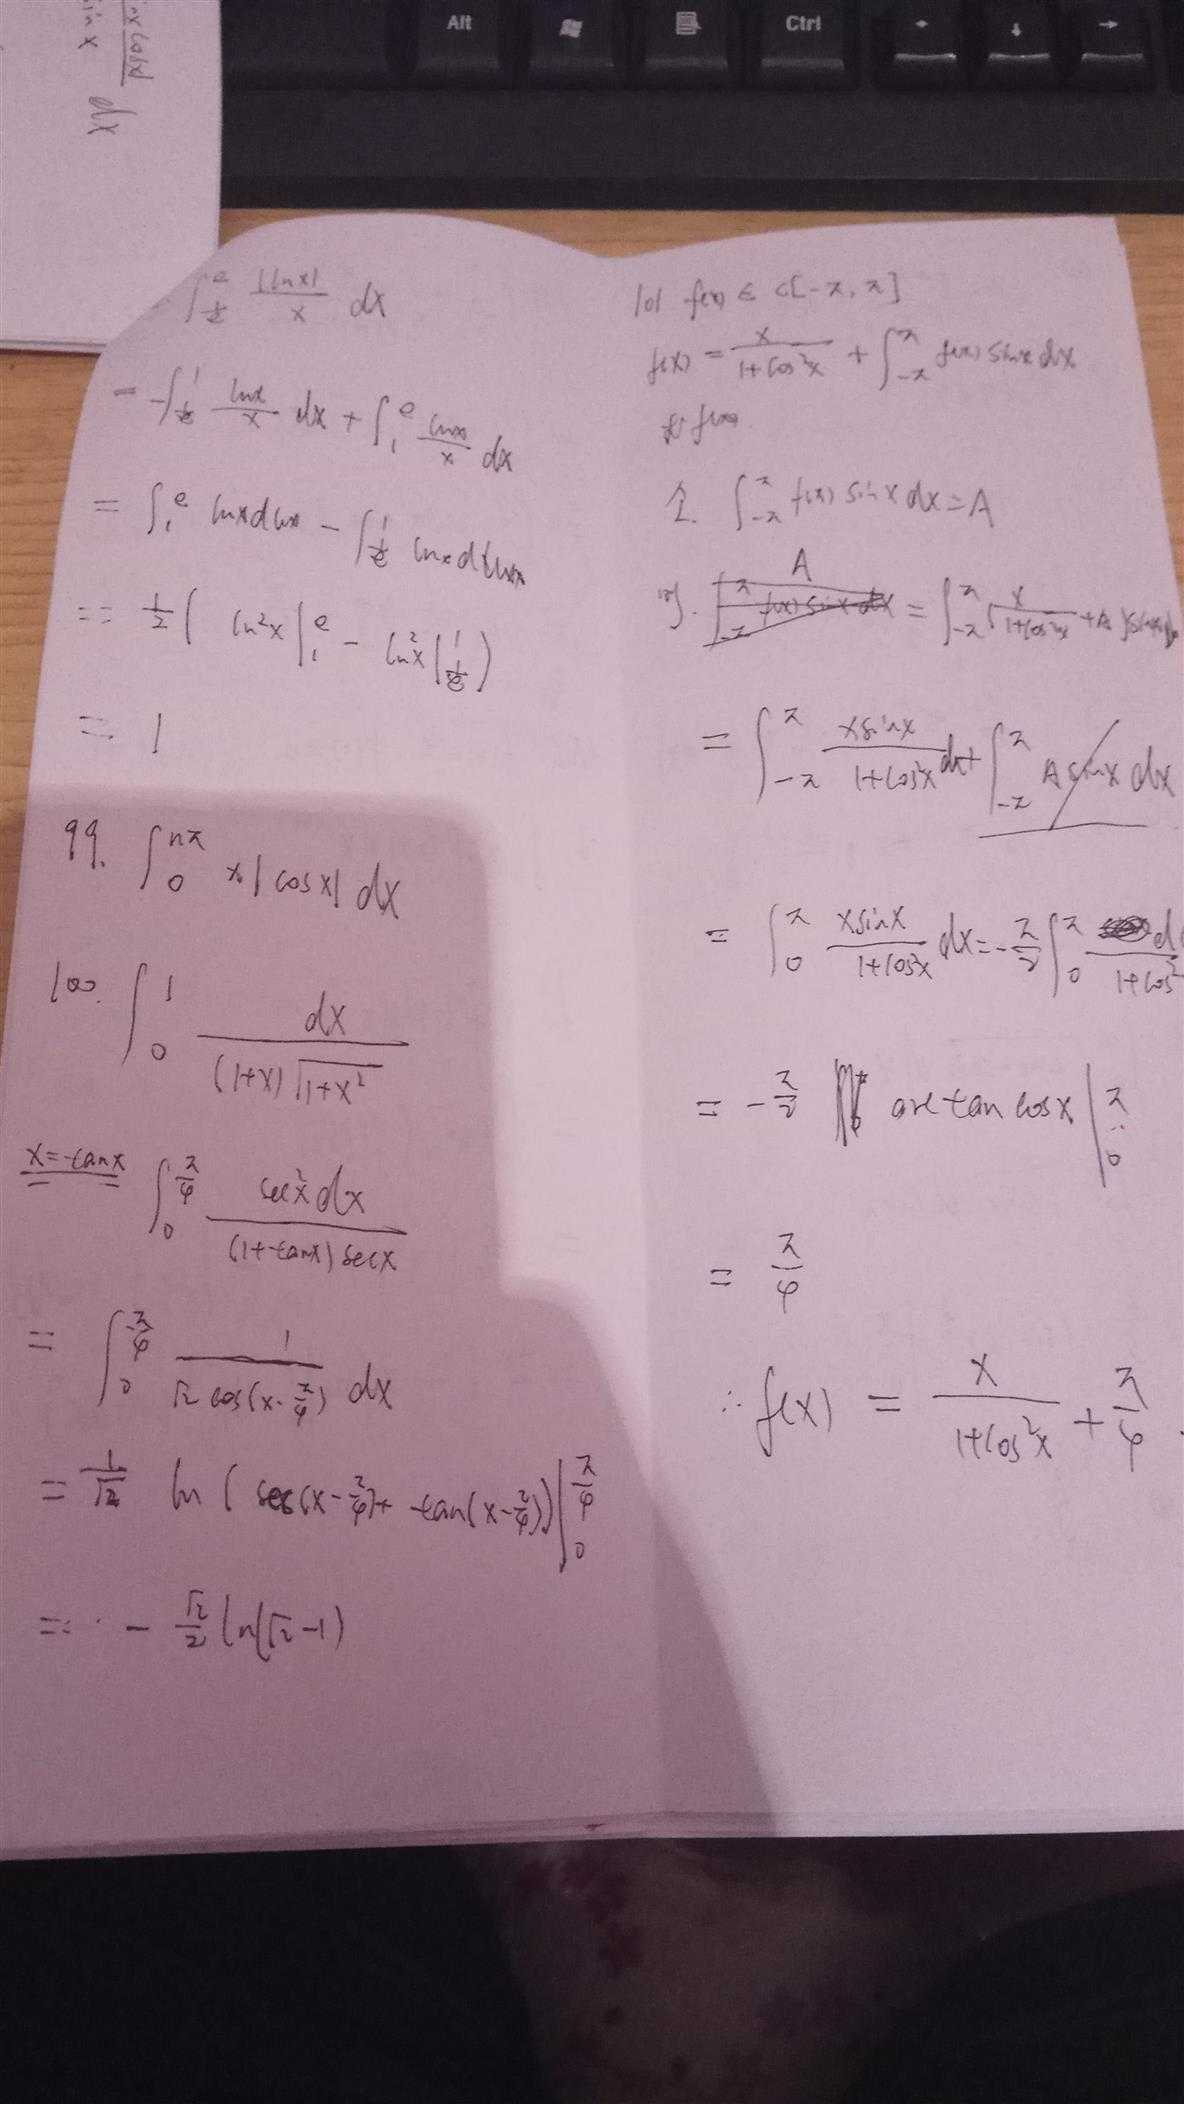 Alt Ctrl
sin x dx
∫_{1/e}^{e} |lnx|/x dx
= -∫_{1/e}^{1} lnx/x dx + ∫_1^e lnx/x dx
= ∫_1^e lnx dlnx - ∫_{1/e}^{1} lnx dlnx
= 1/2 ( ln²x |_1^e - ln²x |_{1/e}^{1} )
= 1
99. ∫_0^{nπ} x·|cosx| dx
100. ∫_0^1 dx/((1+x)√(1+x²))
x=tanx ∫_0^{π/4} sec²x dx/((1+tanx) secx)
= ∫_0^{π/4} 1/(√2 cos(x-π/4)) dx
= 1/√2 ln ( sec(x-π/4)+ tan(x-π/4)) |_0^{π/4}
= - √2/2 ln(√2-1)
101 f(x) ∈ C[-π, π]
f(x) = x/(1+cos²x) + ∫_{-π}^{π} f(x) sinx dx
求 f(x)
令. ∫_{-π}^{π} f(x) sinx dx = A
则. A = ∫_{-π}^{π} (x/(1+cos²x) + A) sinx
= ∫_{-π}^{π} xsinx/(1+cos²x) dx + ∫_{-π}^{π} A sinx dx
= ∫_0^π xsinx/(1+cos²x) dx = -π/2 ∫_0^π d /(1+cos²
= -π/2 arctan cosx |_0^π
= π/4
∴ f(x) = x/(1+cos²x) + π/4.